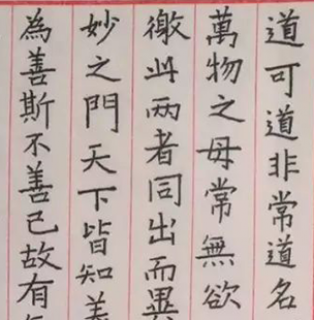 道可道非常道名
萬物之母常無欲
徼此两者同出而異
妙之門天下皆知美
為善斯不善已故有